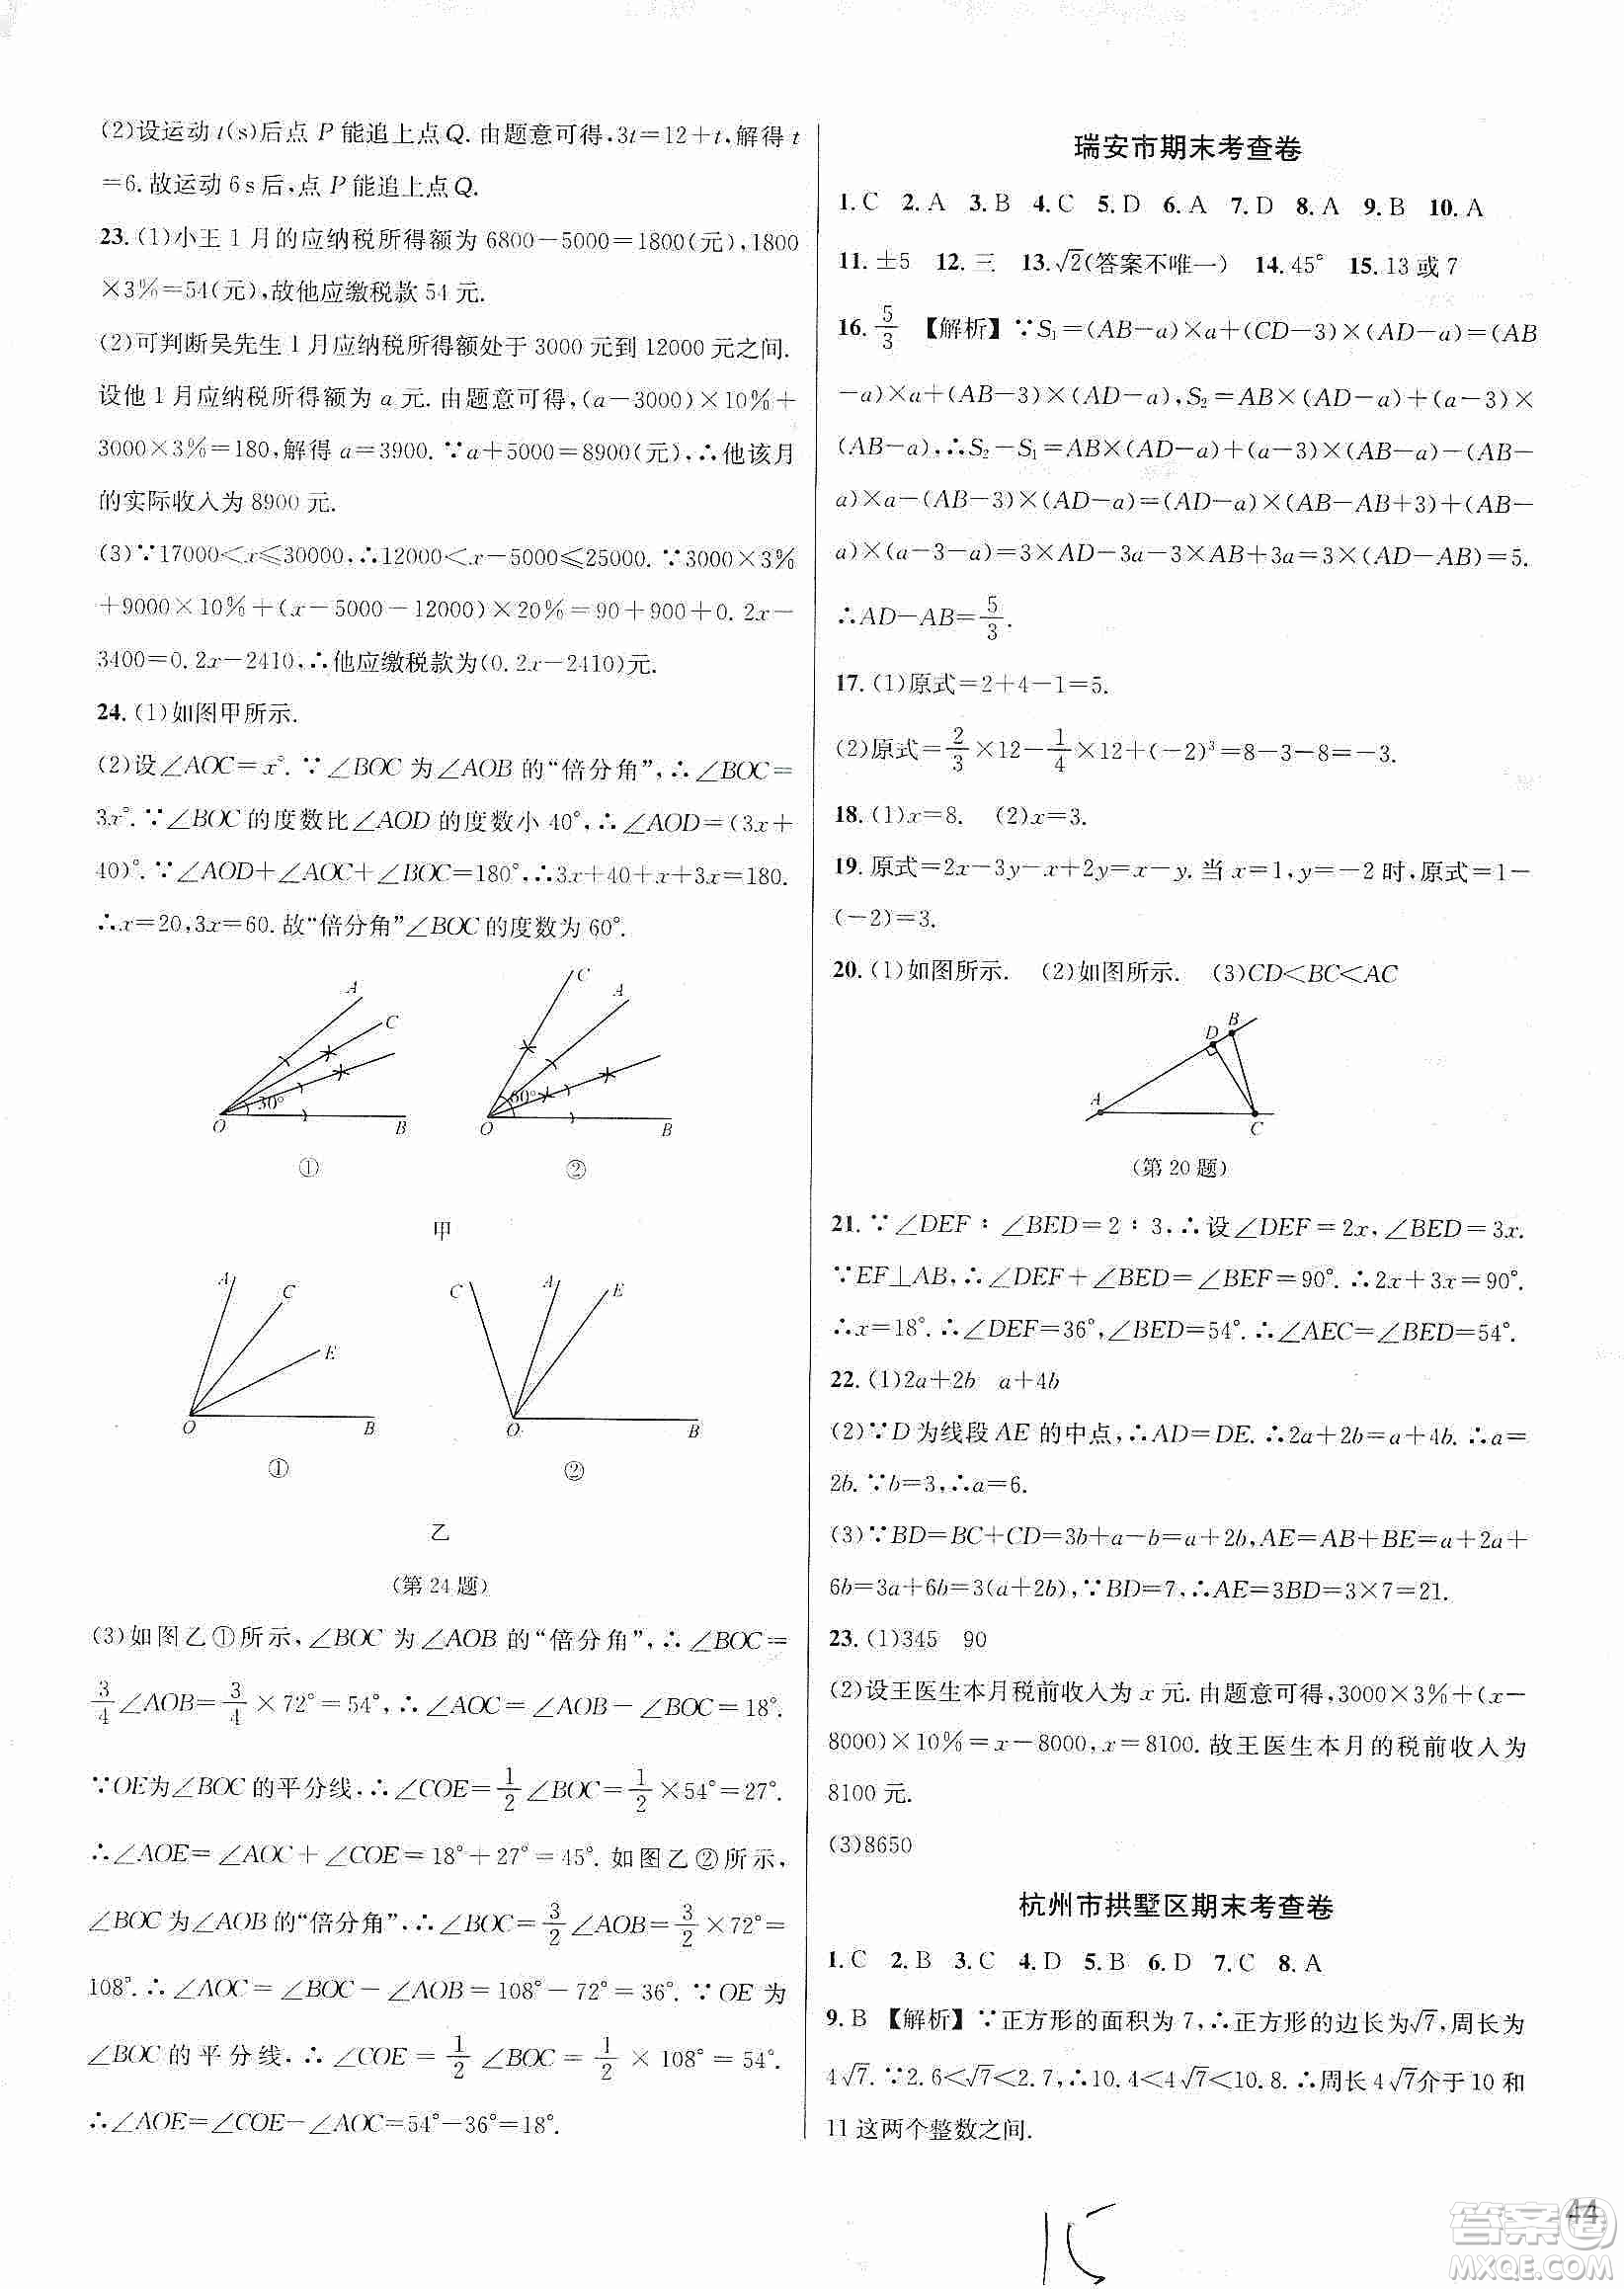 (2)设运动t(s)后点P能追上点Q.由题意可得,3t=12+t,解得t
=6.故运动6s后,点P能追上点Q.
23.(1)小王1月的应纳税所得额为6800-5000=1800(元),1800
×3%=54(元),故他应缴税款54元.
(2)可判断吴先生1月应纳税所得额处于3000元到12000元之间.
设他1月应纳税所得额为a元.由题意可得,(a-3000)×10%+
3000×3%=180,解得a=3900.∵a+5000=8900(元),∴他该月
的实际收入为8900元.
(3)∵17000<x≤30000,∴12000<x-5000≤25000.∵3000×3%
+9000×10%+(x-5000-12000)×20%=90+900+0.2x-
3400=0.2x-2410,∴他应缴税款为(0.2x-2410)元.
24.(1)如图甲所示.
(2)设∠AOC=x°.∵∠BOC为∠AOB的“倍分角”,∴∠BOC=
3x°.∵∠BOC的度数比∠AOD的度数小40°,∴∠AOD=(3x+
40)°.∵∠AOD+∠AOC+∠BOC=180°,∴3x+40+x+3x=180.
∴x=20,3x=60.故“倍分角”∠BOC的度数为60°.
A C 30° O B
①
C A 60° O B
②
甲
A C E O B
①
C A E O B
②
乙
(第24题)
(3)如图乙①所示,∠BOC为∠AOB的“倍分角”,∴∠BOC=
3/4∠AOB=3/4×72°=54°,∴∠AOC=∠AOB-∠BOC=18°.
∵OE为∠BOC的平分线,∴∠COE=1/2∠BOC=1/2×54°=27°.
∴∠AOE=∠AOC+∠COE=18°+27°=45°.如图乙②所示,
∠BOC为∠AOB的“倍分角”,∴∠BOC=3/2∠AOB=3/2×72°=
108°.∴∠AOC=∠BOC-∠AOB=108°-72°=36°.∵OE为
∠BOC的平分线,∴∠COE=1/2∠BOC=1/2×108°=54°.
∴∠AOE=∠COE-∠AOC=54°-36°=18°.
瑞安市期末考查卷
1.C 2.A 3.B 4.C 5.D 6.A 7.D 8.A 9.B 10.A
11.±5 12.三 13.√2(答案不唯一) 14.45° 15.13或7
16.5/3 【解析】∵S₁=(AB-a)×a+(CD-3)×(AD-a)=(AB
-a)×a+(AB-3)×(AD-a),S₂=AB×(AD-a)+(a-3)×
(AB-a),∴S₂-S₁=AB×(AD-a)+(a-3)×(AB-a)-(AB-
a)×a-(AB-3)×(AD-a)=(AD-a)×(AB-AB+3)+(AB-
a)×(a-3-a)=3×AD-3a-3×AB+3a=3×(AD-AB)=5.
∴AD-AB=5/3.
17.(1)原式=2+4-1=5.
(2)原式=2/3×12-1/4×12+(-2)³=8-3-8=-3.
18.(1)x=8. (2)x=3.
19.原式=2x-3y-x+2y=x-y.当x=1,y=-2时,原式=1-
(-2)=3.
20.(1)如图所示. (2)如图所示. (3)CD<BC<AC
D B A C
(第20题)
21.∵∠DEF∶∠BED=2∶3,∴设∠DEF=2x,∠BED=3x.
∵EF⊥AB,∴∠DEF+∠BED=∠BEF=90°.∴2x+3x=90°.
∴x=18°.∴∠DEF=36°,∠BED=54°.∴∠AEC=∠BED=54°.
22.(1)2a+2b a+4b
(2)∵D为线段AE的中点,∴AD=DE.∴2a+2b=a+4b.∴a=
2b.∵b=3,∴a=6.
(3)∵BD=BC+CD=3b+a-b=a+2b,AE=AB+BE=a+2a+
6b=3a+6b=3(a+2b),∵BD=7,∴AE=3BD=3×7=21.
23.(1)345 90
(2)设王医生本月税前收入为x元.由题意可得,3000×3%+(x-
8000)×10%=x-8000,x=8100.故王医生本月的税前收入为
8100元.
(3)8650
杭州市拱墅区期末考查卷
1.C 2.B 3.C 4.D 5.B 6.D 7.C 8.A
9.B 【解析】∵正方形的面积为7,∴正方形的边长为√7,周长为
4√7.∵2.6<√7<2.7,∴10.4<4√7<10.8.∴周长4√7介于10和
11这两个整数之间.
15
44
答案圈
MXQE.COM